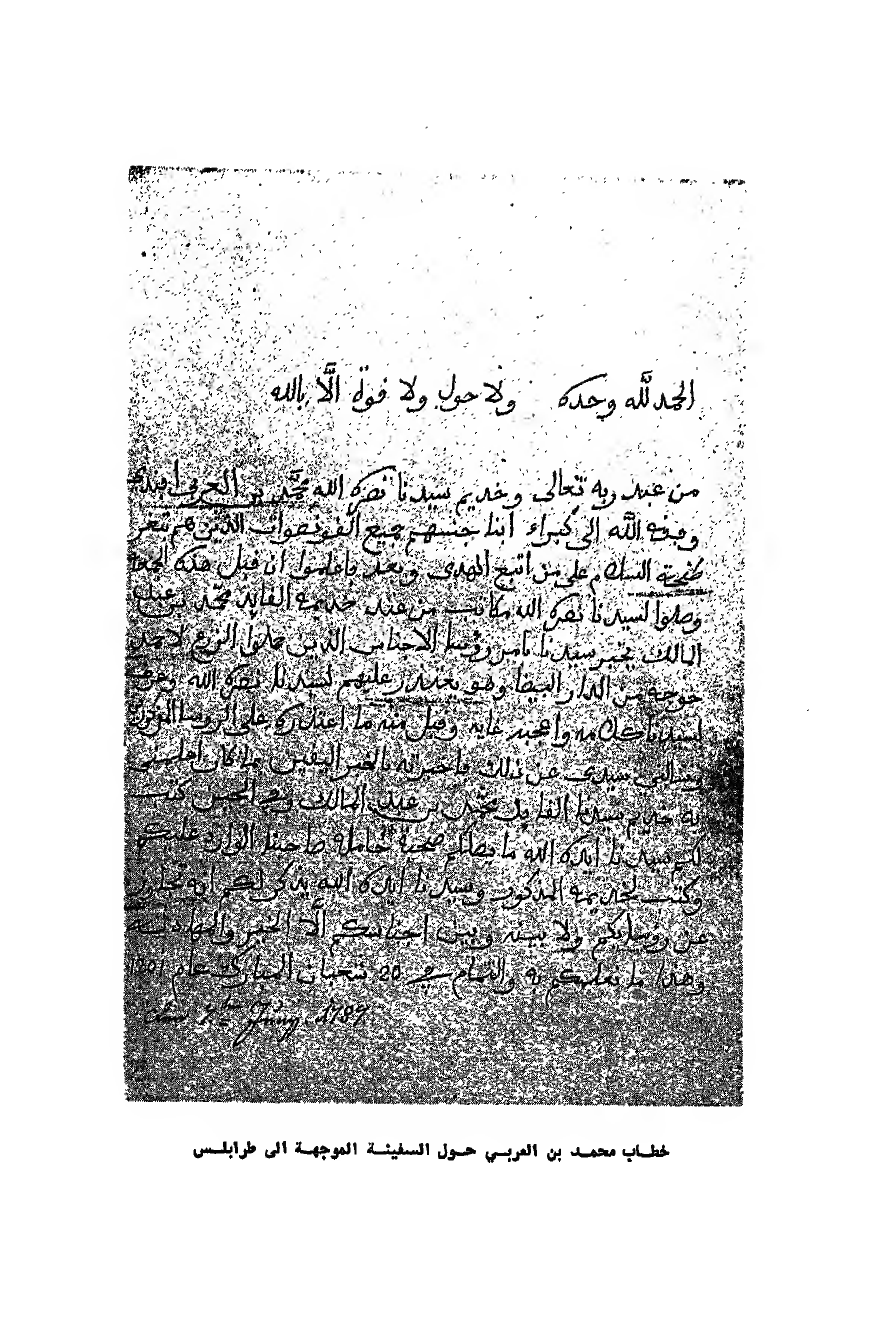 الحمد لله وحده ولا حول ولا قوة الا بالله
من عبد ربه تعالى وخديم سيدنا نصره الله محمد بن العربي افندي
وفقه الله الى كبراء ابنا جنسهم جميع القونصوات الذين هم بثغر
طنجة السلام على من اتبع الهدى وبعد فاعلموا ان قبل هذه
وصلوا لسيدنا نصره الله مكاتب من عند خديمه القايد محمد بن عبد
المالك يخبر سيدنا بامر رؤسا الاجناس الذين حملوا الزرع
خوجه من الدار البيضا وهو يعتذر عليهم لسيدنا نصره الله
لسيدنا كلامه واعجبه غايه وقبل منه ما اعتذر به على الروسا
وسالني سيدي عن ذلك فاخبرته بالخبر اليقين بما كان
به خديم سيدنا القايد محمد بن عبد المالك كتب
لكم سيدنا ايده الله ما يصلكم صحبة حامله صاحبنا الوارد عليكم
وكتب لخديمه المذكور وسيدنا ايده الله يذكر لكم انه
عن رؤسايكم ولا بينه وبين اجناسكم الا الخير والمهادنة
وهذا ما نعلمكم به والسلام في 20 شعبان المبارك عام 1201
Juny 1787
خطاب محمد بن العربي حول السفينة الموجهة الى طرابلس